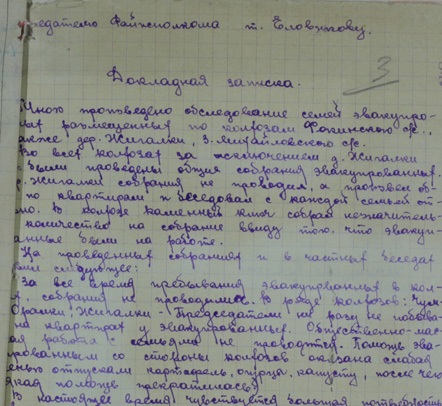 редателю Райисполкома т. Еловикову.
3
Докладная записка.
Мною произведено обследование семей эвакуиро-
размещенных по колхозам Фокинского с/с.,
акже дер. Жигалки, З. Михайловского с/с
Во всех колхозах за исключением д. Жигалки
были проведены общие собрания эвакуированных.
Жигалки собрания не проводил, а произвел об-
по квартирам и беседовал с каждой семьей от-
но. В колхозе каменный ключ собрал незначитель-
количество на собрание ввиду того, что эвакуи-
анные были на работе.
На проведенных собраниях и в частных беседах
следующее:
За все время пребывания эвакуированных в кол-
собрания не проводились. В ряде колхозов:
Жигалки - Председатели ни разу не побыва-
на квартирах у эвакуированных. Общественно-мас-
ая работа с семьями не проводится. Помощь эва-
рованным со стороны колхозов оказана слабая
отпускали картофель, огурцы, капусту, после чего
помощь прекратилась
В настоящее время чувствуется большая потребность